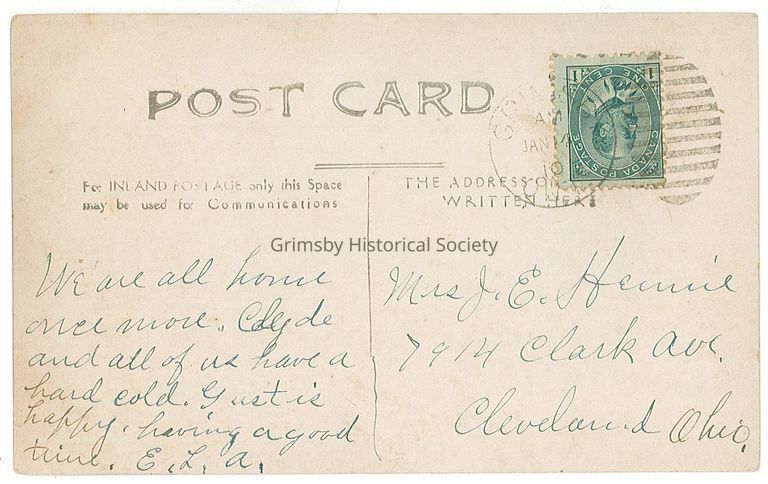 POST CARD
1 ONE CENT 1
CANADA POSTAGE
AM
JAN 14
10
For INLAND POSTAGE only this Space
may be used for Communications
THE ADDRESS O
WRITTEN HERE
Grimsby Historical Society
We are all home
once more. Clyde
and all of us have a
hard cold. Gust is
happy. having a good
time. E. L. A.
Mrs J. E. Hennie
7914 Clark Ave.
Cleveland Ohio.